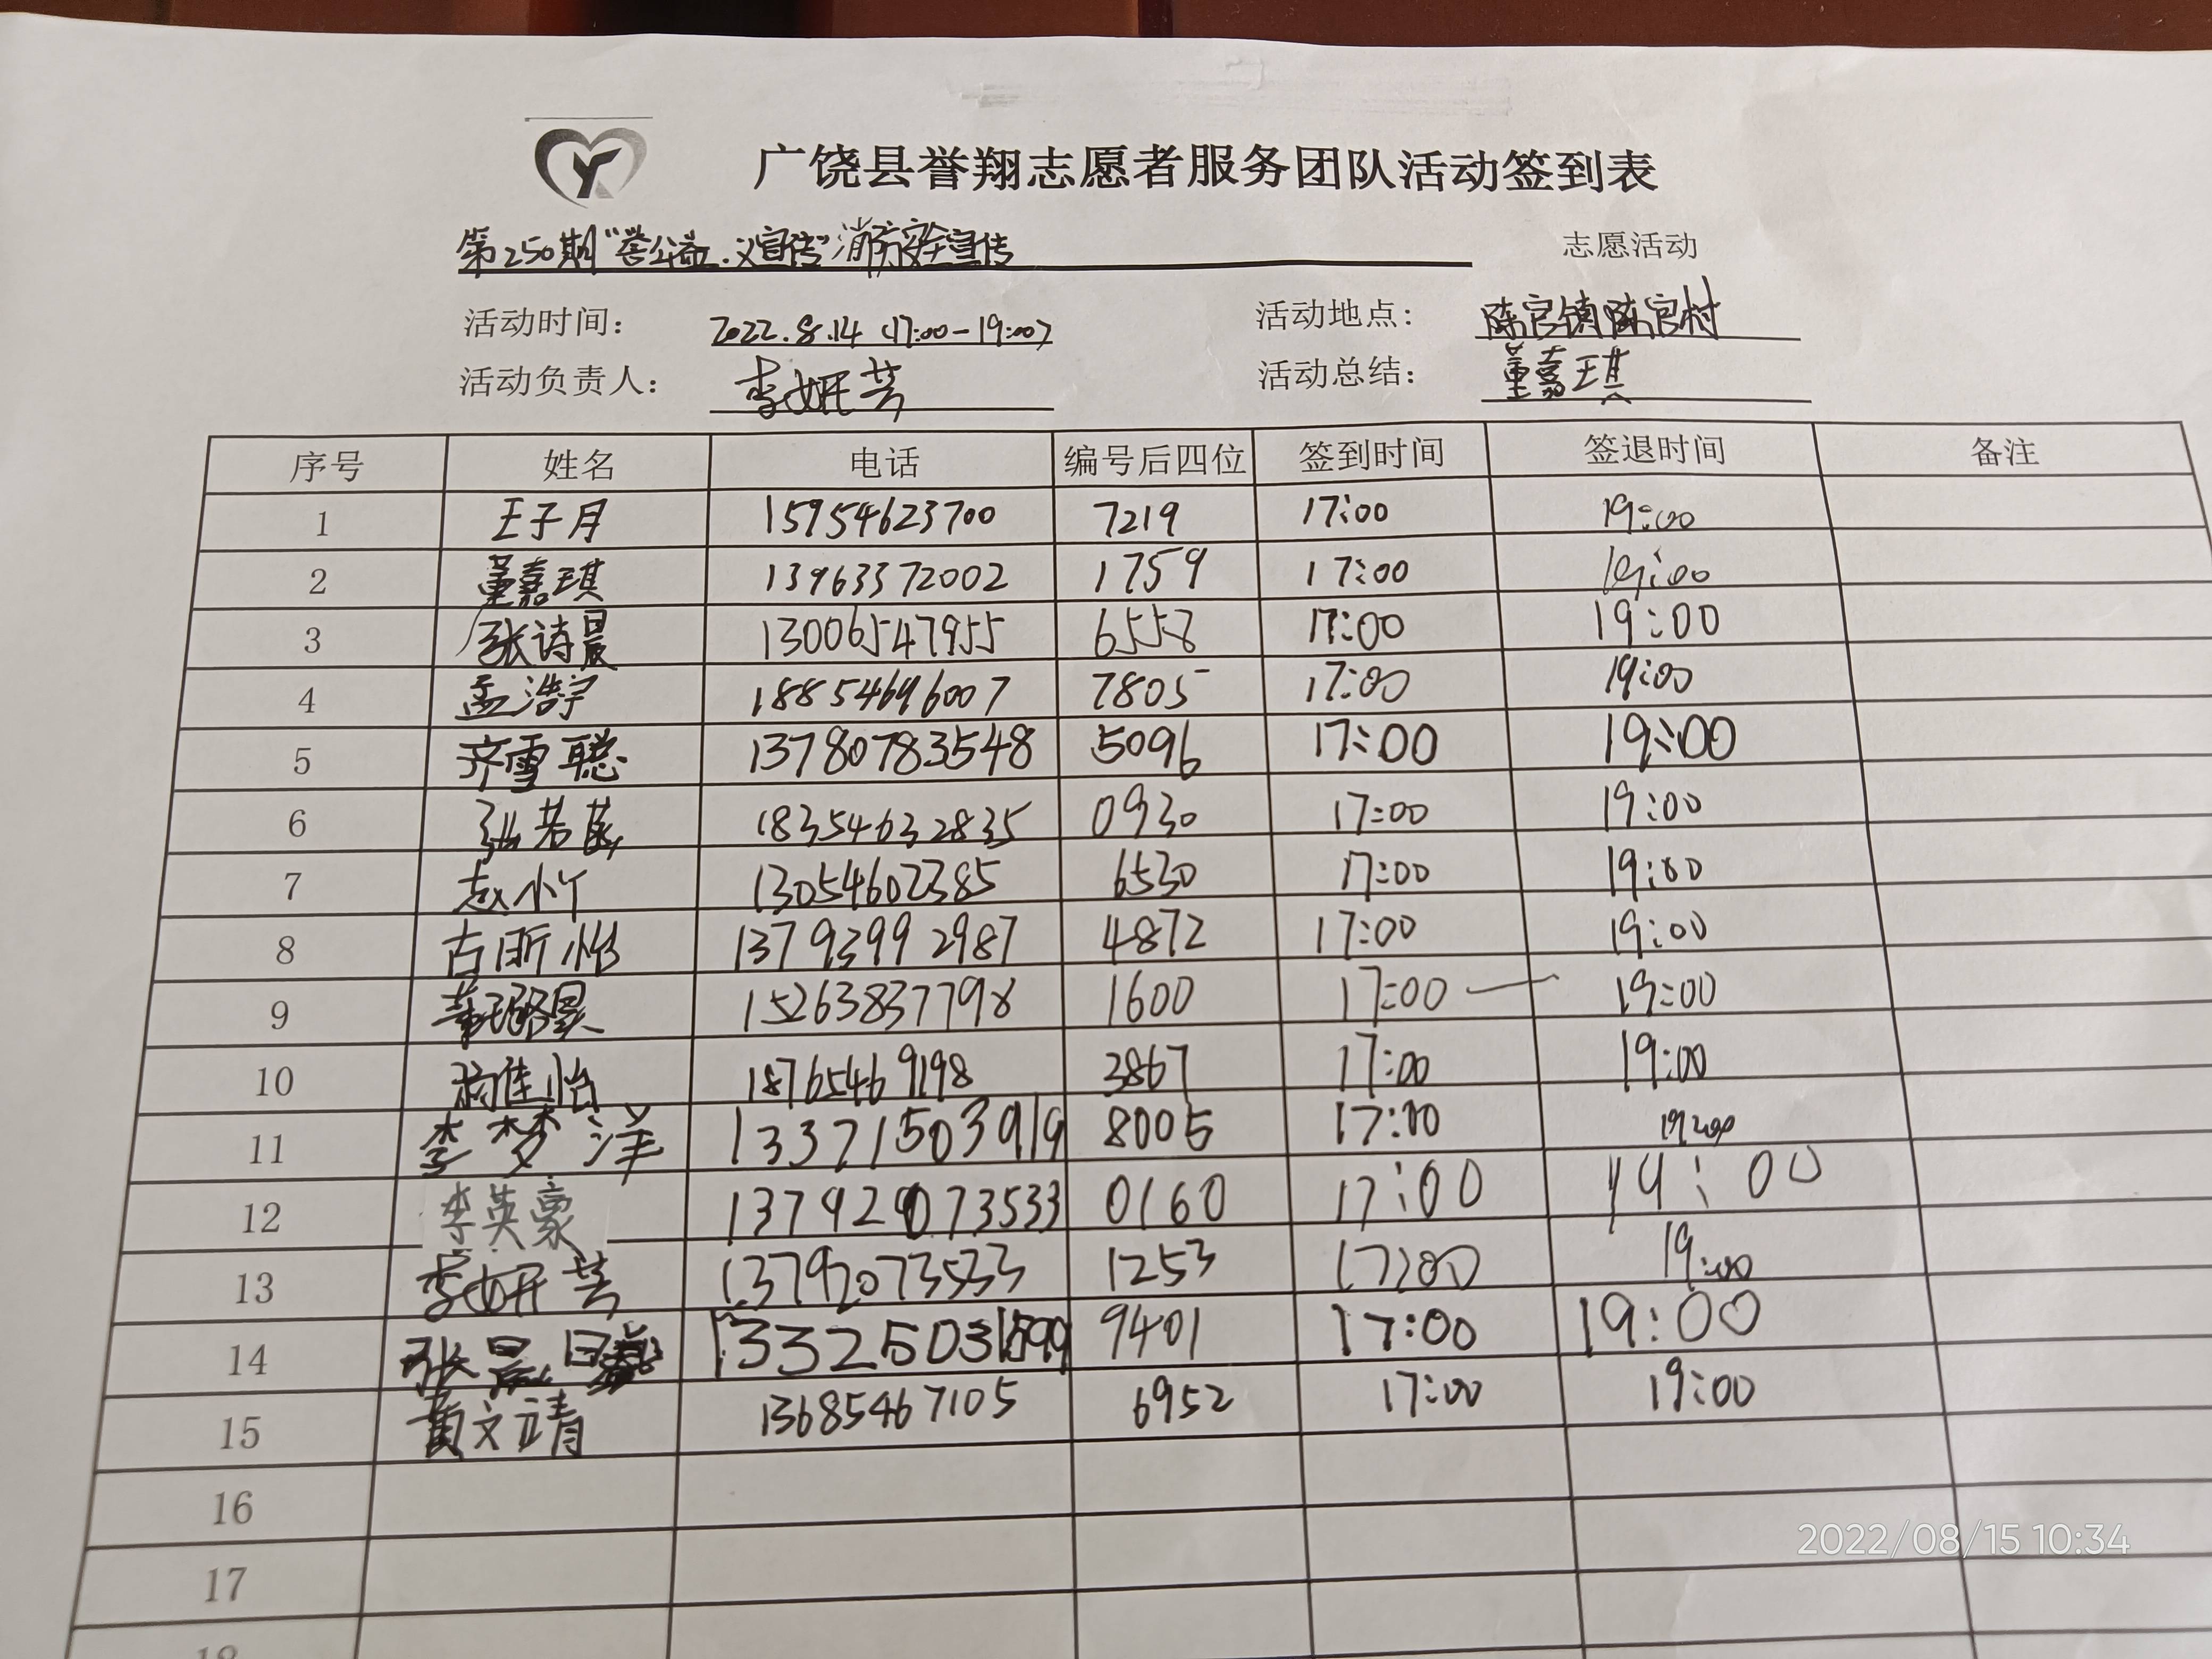 广饶县誉翔志愿者服务团队活动签到表
第250期"誉公益.义宣传"消防安全宣传 志愿活动
活动时间： 2022.8.14（17:00-19:00） 活动地点： 陈官镇陈官村
活动负责人： 李妍芸 活动总结： 董嘉琪
序号 姓名 电话 编号后四位 签到时间 签退时间 备注
1 王子月 15954623700 7219 17:00 19:00
2 董嘉琪 13963372002 1759 17:00 19:00
3 张诗晨 13006547955 6558 17:00 19:00
4 孟浩宇 18854696007 7805 17:00 19:00
5 齐雪聪 13780783548 5096 17:00 19:00
6 张若菡 18354632835 0930 17:00 19:00
7 赵小丫 13054602385 6530 17:00 19:00
8 古昕怡 13793992987 4872 17:00 19:00
9 15263837798 1600 17:00 19:00
10 佳怡 18765469198 3867 17:00 19:00
11 李梦洋 13371503919 8005 17:00 19:00
12 李英豪 0160 17:00 19:00
13 李妍芸 13792073533 1253 17:00 19:00
14 张 9401 17:00 19:00
15 黄文靖 13685467105 6952 17:00 19:00
16
17
18
2022/08/15 10:34